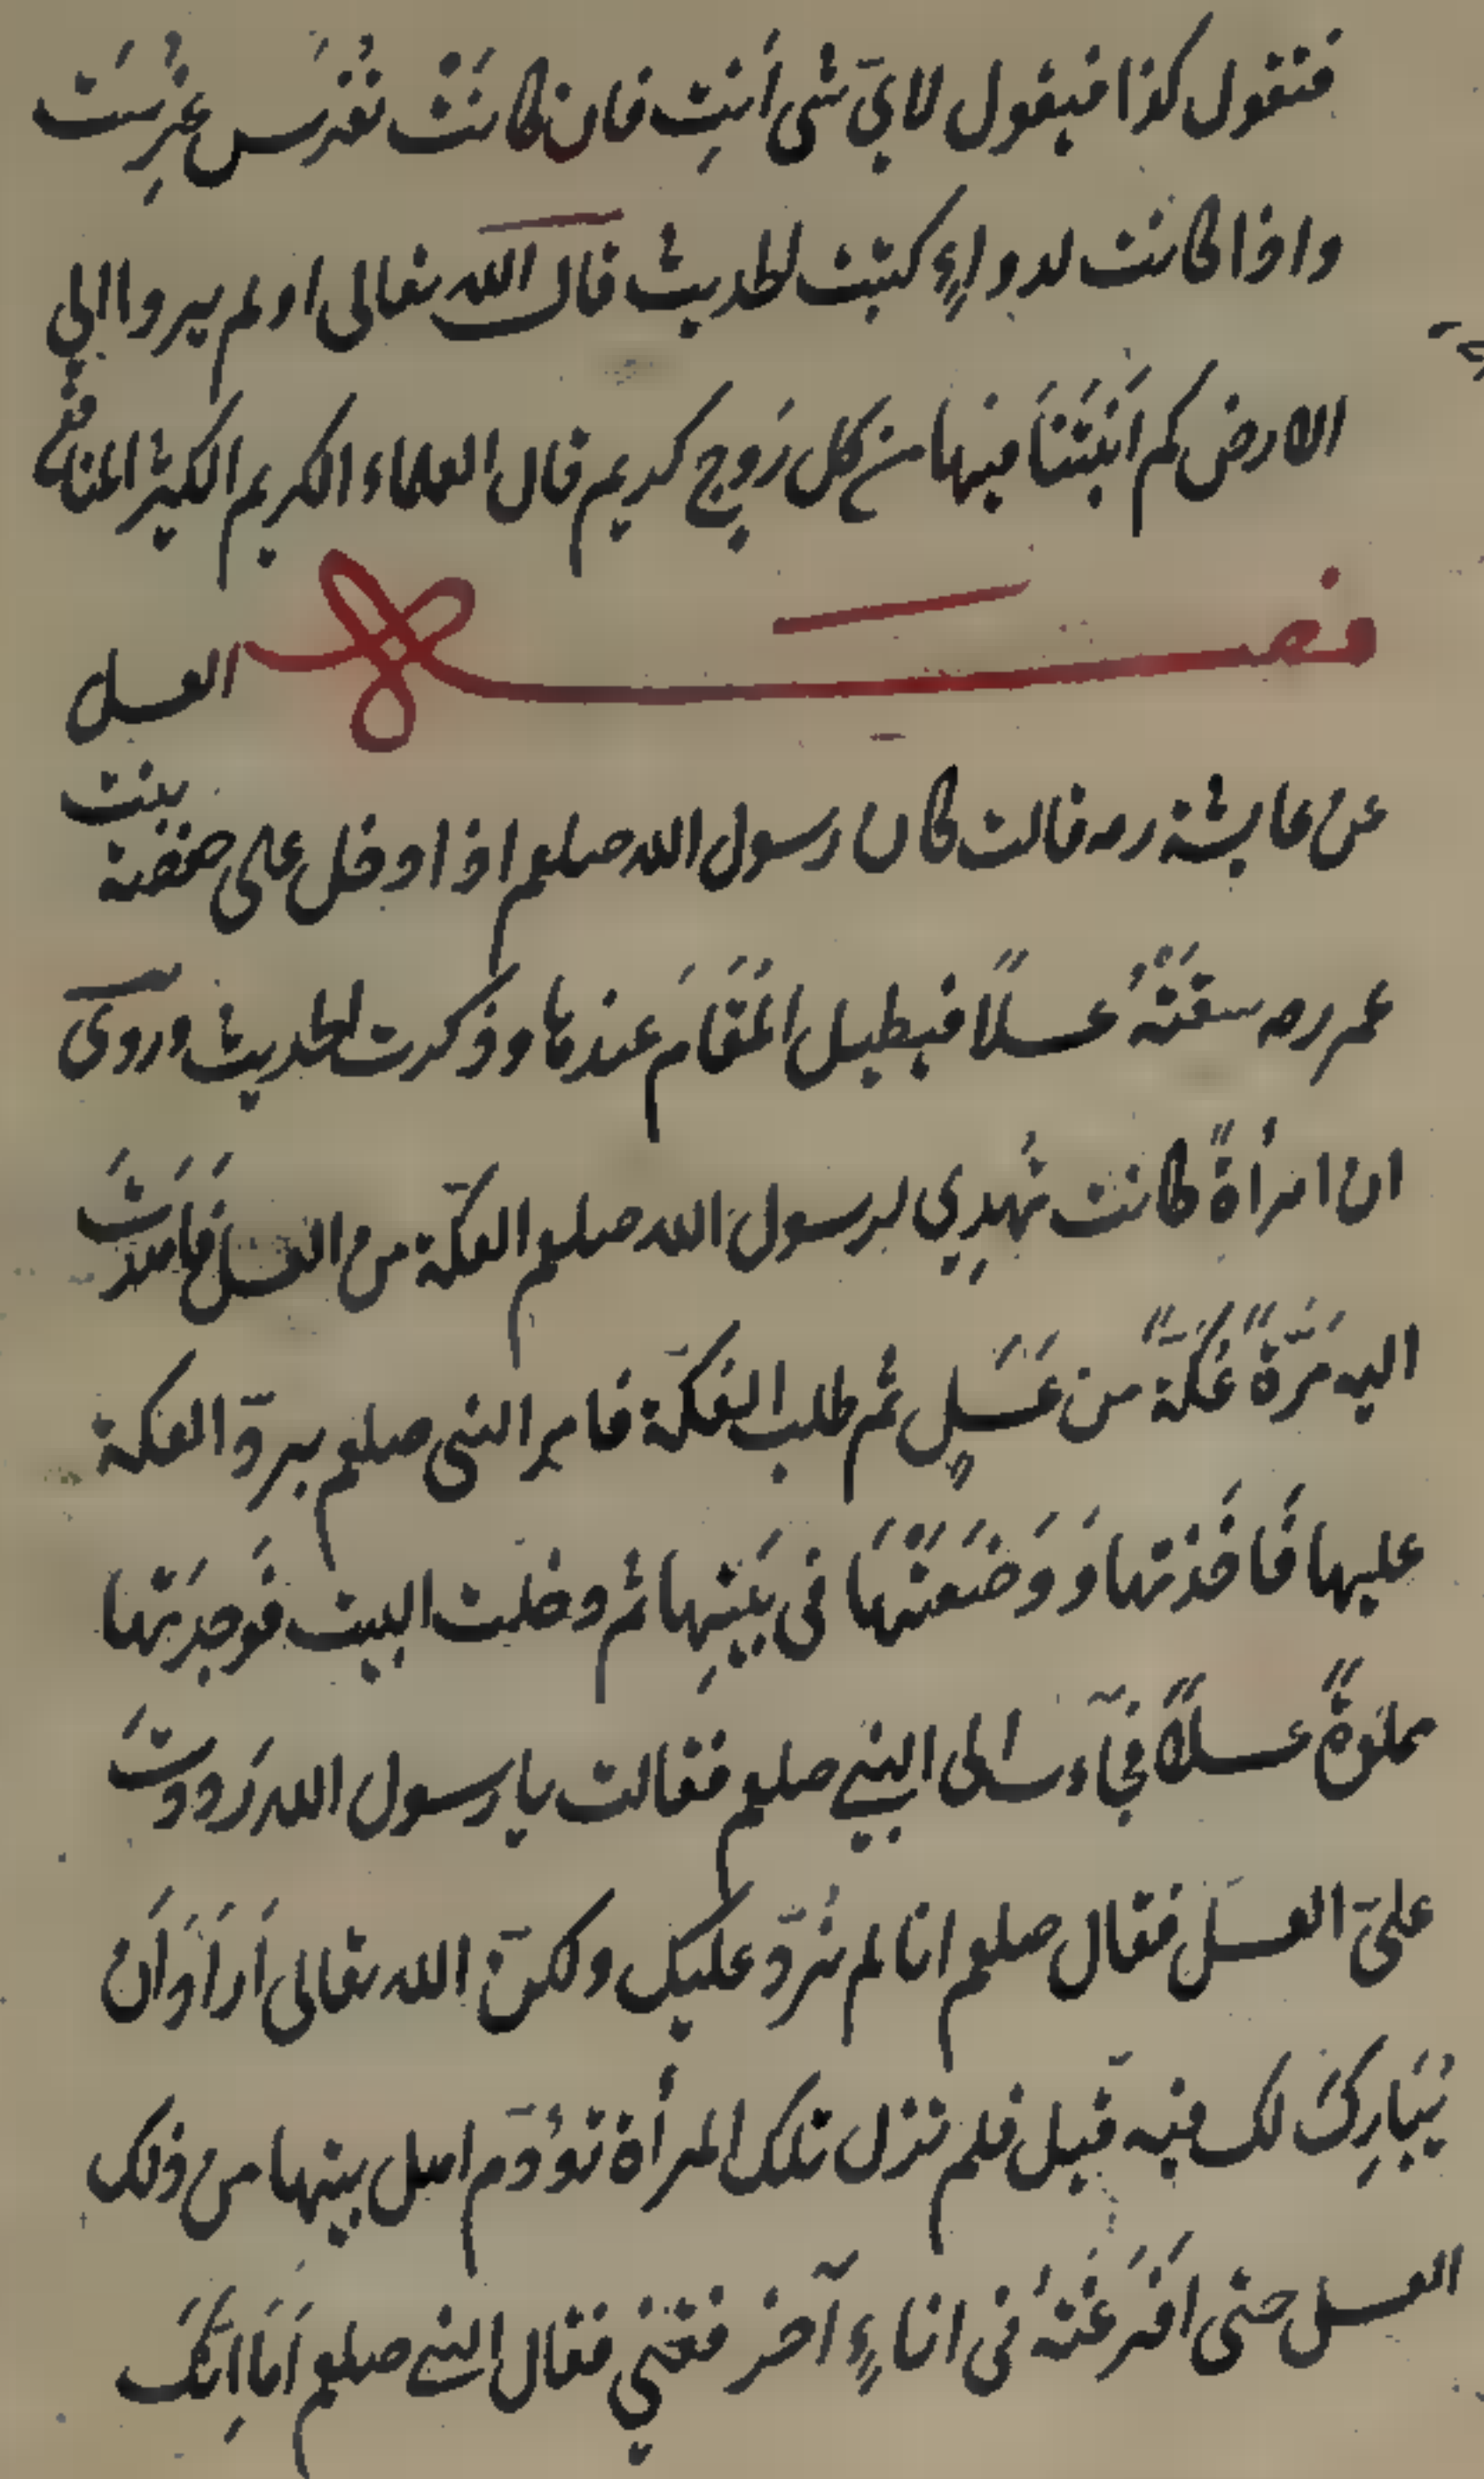 فتقول كذا فيقول لايّ شى أنتِ فان كانَتْ تُغرَس غُرِسَت
واذا كانت لدواءٍ كتبت الحديث قال الله تعالى اولم يروا الى
الارض كم اَنبَتْنَا فيها من كل زَوجٍ كريم قال العلماء الكريم الكثير المنافع
فصل العسل
عن عايشة رضه قالت كان رسول الله صلعم اذا دخل على حفصة بنت
عمر رضه سقَتْهُ عسلًا فيطيل المُقَامَ عندها وذكرت الحديث وروى
ان امرأةً كانت تُهدِي لرسول الله صلعم العكّة من العسل فَاَهدَتْ
اليه مَرّةً عُكّةً من عَسَلٍ ثم طلب العُكّة فامر النبى صلعم بردّ العكة
عليها فَاَخَذتها وَوَضَعَتْهَا فى بَيتِها ثم دخلت البيت فَوجدَتها
مملوةً عسلًا فجآءت الى النبي صلعم فقالت يا رسول الله رَددتَ
علىّ العسَل فقال صلعم انا لم نُردّ عليك ولكنّ الله تعالى اَرَادَ اَن
يُبَارِكَ لك فيه قيل فلم تزل تلك المرأة تؤدّم اهل بيتها من ذلك
العسل حتى اَفرَغَتْهُ فى اناءٍ آخر ففنى فقال النبي صلعم اَمَا اِنّكَ